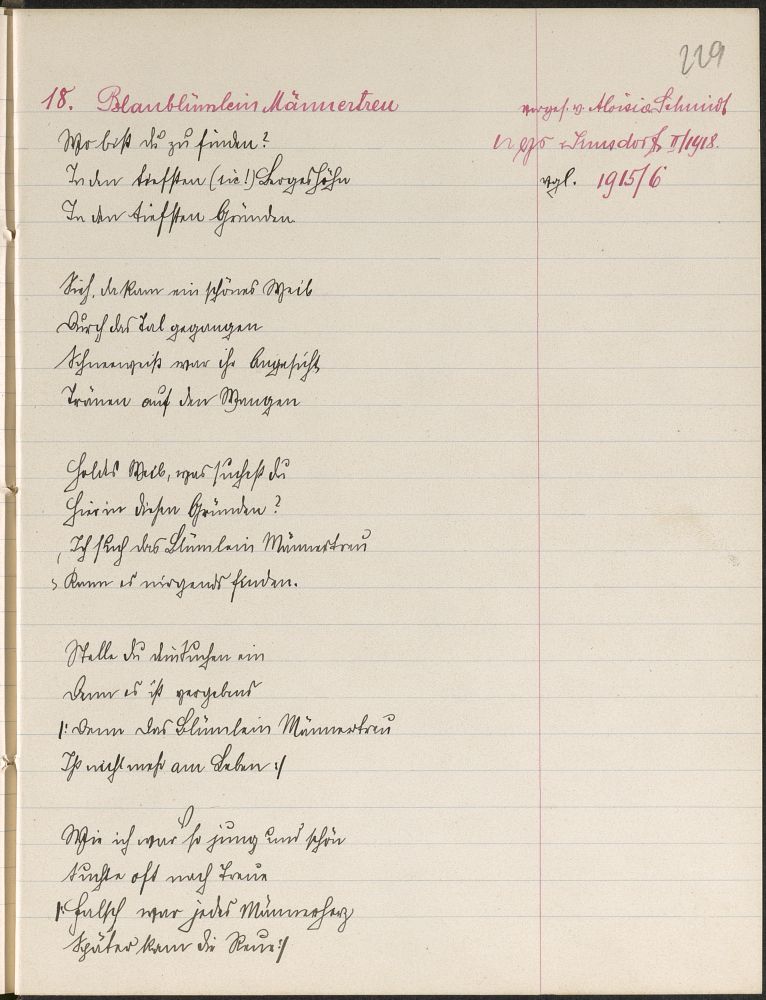 229
18. Blaublümlein Männertreu
vorges. v. Aloisia Schmidt
II/1918.
vgl. 1915/6
Wo bist du zu finden?
In den tiefsten (sic!) Bergeshöhn
In den tiefsten Gründen.
Sieh, da kam ein schönes Weib
Durch das Tal gegangen
Schneeweiß war ihr Angesicht
Tränen auf den Wangen
Holdes Weib, was suchest du
Hier in diesen Gründen?
Ich such das Blümlein Männertreu
Kann es nirgends finden.
Stelle du dein Suchen ein
Denn es ist vergebens
|: Denn das Blümlein Männertreu
Ist nicht mehr am Leben :|
Wie ich war so jung und schön
Suchte oft nach Treue
|: Falsch war jedes Männerherz
Später kam die Reue :|